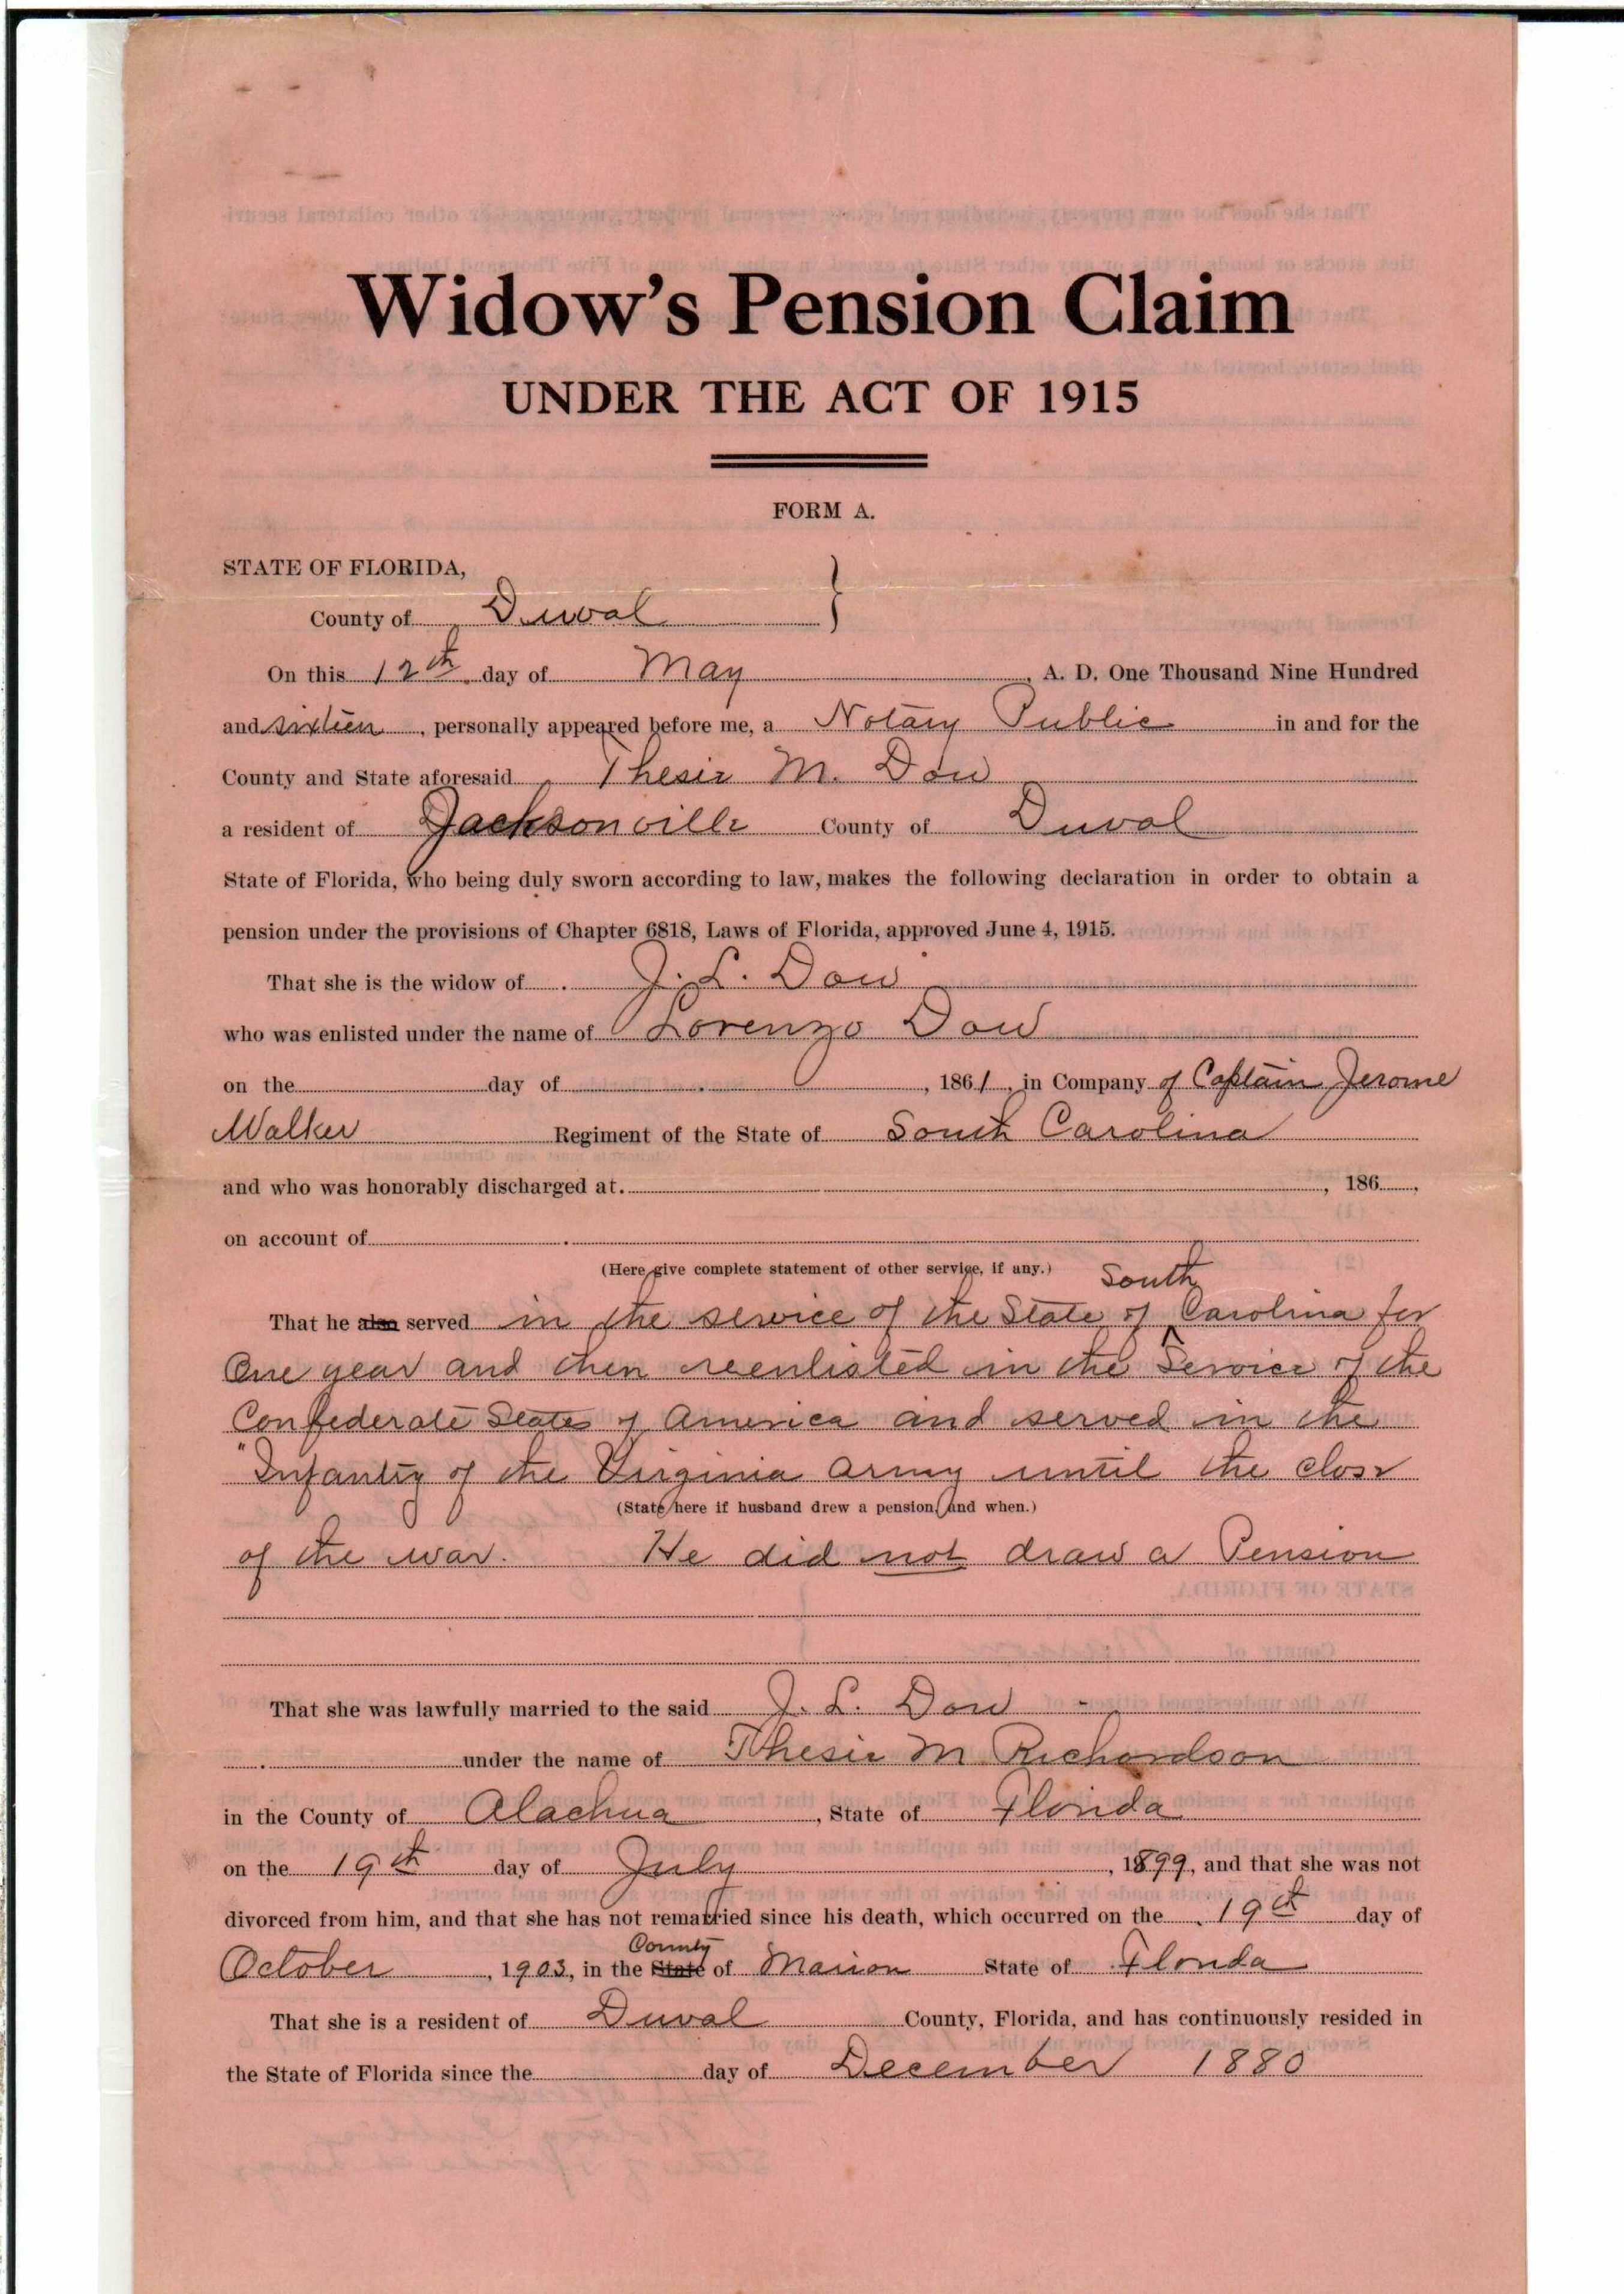 Widow's Pension Claim
UNDER THE ACT OF 1915
FORM A.
STATE OF FLORIDA,
County of Duval
On this 12th day of May, A. D. One Thousand Nine Hundred
and sixteen, personally appeared before me, a Notary Public in and for the
County and State aforesaid Thesie M. Dow
a resident of Jacksonville County of Duval
State of Florida, who being duly sworn according to law, makes the following declaration in order to obtain a
pension under the provisions of Chapter 6818, Laws of Florida, approved June 4, 1915.
That she is the widow of J. L. Dow
who was enlisted under the name of Lorenzo Dow
on the day of , 1861, in Company of Captain Jerome
Walker Regiment of the State of South Carolina
and who was honorably discharged at. , 186 ,
on account of
(Here give complete statement of other service, if any.)
South
That he also served in the service of the State of Carolina for
One year and then reenlisted in the Service of the
Confederate States of America and served in the
"Infantry of the Virginia Army until the close
(State here if husband drew a pension, and when.)
of the war. He did not draw a Pension
That she was lawfully married to the said J. L. Dow
under the name of Thesie M Richardson
in the County of Alachua, State of Florida
on the 19th day of July, 1899, and that she was not
divorced from him, and that she has not remarried since his death, which occurred on the 19th day of
County
October, 1903, in the State of Marion State of Florida
That she is a resident of Duval County, Florida, and has continuously resided in
the State of Florida since the day of December 1880